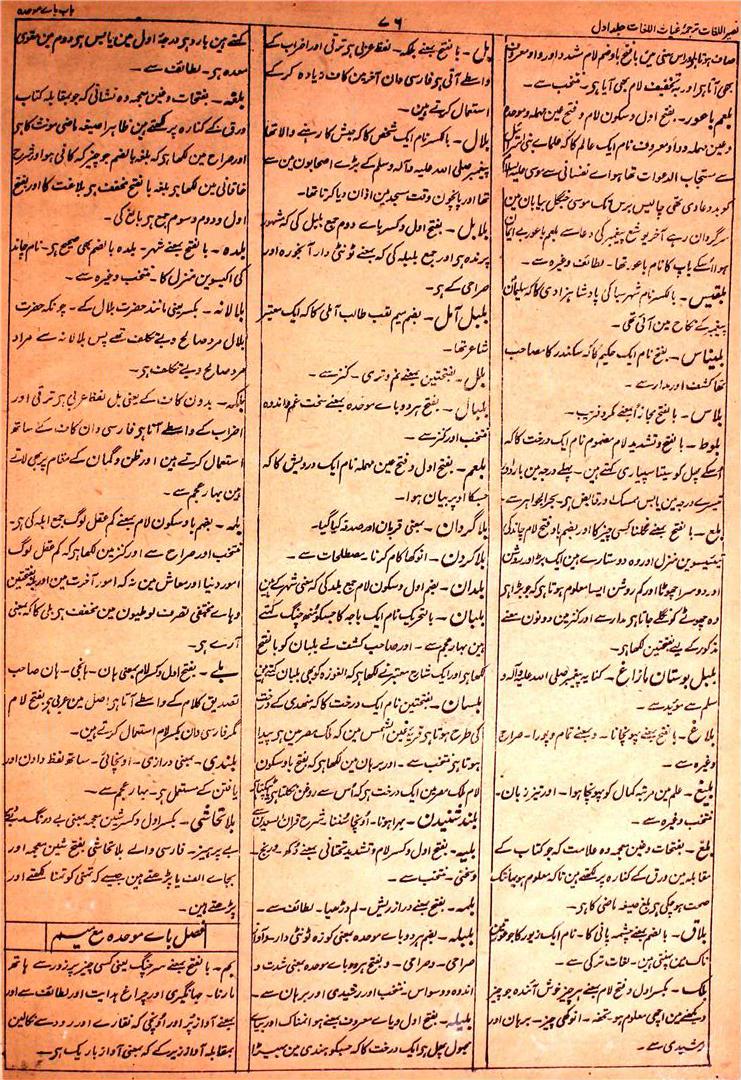 نصیر اللغات ترجمۂ غیاث اللغات جلد اول
۷۶
باب باے موحدہ
صاف ہونا بھی آتا ہی اور بہ تخفیف لام بھی آیا ہی۔ منتخب سے۔
بلعم باعور۔ بفتح اول و سکون لام و فتح عین مہملہ و موحدہ
و عین مہملہ و واو معروف نام ایک عالم کا کہ علماے بنی اسرائیل
سے مستجاب الدعوات تھا ہواے نفسانی سے موسی علیہ السلام
کو بد دعا دی تھی چالیس برس تک موسی جنگل بیابان مین
سرگردان رہے آخر یوشع پیغمبر کی دعا سے بلعم باعور بے ایمان
ہوا اسکے باپ کا نام باعور تھا۔ لطائف وغیرہ سے۔
بلقیس۔ بالکسر نام شہر سبا کی پادشاہزادی کا کہ سلیمان
پیغمبر کے نکاح مین آئی تھی۔
بلیناس۔ بفتح نام ایک حکیم کا کہ سکندر کا مصاحب
تھا کشف اور مدار سے۔
بلاس۔ بالفتح مجازاً بمعنے مکر و فریب۔
بلوط۔ بالفتح و تشدید لام مضموم نام ایک درخت کا کہ
اسکے پھل کو سیتا سپیاری کہتے ہین۔ پہلے درجہ مین بارد و
تیسرے درجہ مین یابس ممسک و قابض ہی۔ بحر الجواہر سے۔
بلع۔ بالفتح بمعنے نگلنا کسی چیز کا اور بضم با و فتح لام چاند کی
تیئیسوین منزل اور وہ دو ستارے ہین ایک بڑا اور روشن
اور دوسرا چھوٹا اور کم روشن ایسا معلوم ہوتا ہی کہ جو بڑا ہی
وہ چھوٹے کو نگلے جاتا ہی مدار سے اور کنز مین دونون معنے
مذکور کے بفتحتین لکھا ہی۔
بلبل بوستان مازاغ۔ کنایہ پیغمبر صلی اللہ علیہ و آلہ و
سلم سے مؤید سے۔
بلاغ۔ بالفتح بمعنے پہونچانا۔ و بمعنے تمام و پورا۔ صراح
وغیرہ سے۔
بلیغ۔ علم مین مرتبہ کمال کو پہونچا ہوا۔ اور تیز زبان۔
منتخب وغیرہ سے۔
بلغ۔ بفتحات و غین معجمہ وہ علامت کہ جو کتاب کے
مقابلہ مین ورق کے کنارہ پر لکھتے ہین تاکہ معلوم ہو یہانتک
صحت ہو چکی ہی بلغ صیغہ ماضی کا ہی۔
بلاق۔ بالضم بمعنے چشمہ پانی کا۔ نام ایک زیور کا جو عورتین
ناک مین پہنتی ہین۔ لغات ترکی سے۔
بلک۔ بکسر اول و فتح لام بمعنے ہر چیز خوش آئندہ جو چیز
دیکھنے مین اچھی معلوم ہو بتحفہ۔ انوکھی چیز۔ برہان اور
رشیدی سے۔
بل۔ بالفتح بمعنے بلکہ۔ لفظ عربی ہی ترقی اور اضراب کے
واسطے آتی ہی فارسی دان آخر مین کاف زیادہ کر کے
استعمال کرتے ہین۔
بلال۔ بالکسر نام ایک شخص کا کہ حبش کا رہنے والا تھا
پیغمبر صلی اللہ علیہ و آلہ وسلم کے بڑے اصحابون مین سے
تھا اور پانچون وقت مسجد مین اذان دیا کرتا تھا۔
بلابل۔ بفتح اول و کسر باے دوم جمع بلبل کی کہ مشہور
پرندہ ہی اور جمع بلبلہ کی کہ بمعنے ٹونٹی دار آبخورہ اور
صراحی کے ہی۔
بلبل آمل۔ بضم میم لقب طالب آملی کا کہ ایک معتبر
شاعر تھا۔
بلل۔ بفتحتین بمعنے نم و تری۔ کنز سے۔
بلبال۔ بفتح ہر دو باے موحدہ بمعنے سخت غم و اندوہ
منتخب اور کنز سے۔
بلعم۔ بفتح اول و فتح عین مہملہ نام ایک درویش کا کہ
جسکا اوپر بیان ہوا۔
بلا گردان۔ بمعنی قربان اور صدقہ کیا گیا۔
بلا کردن۔ انوکھا کام کرنا۔ مصطلحات سے۔
بلدان۔ بضم اول و سکون لام جمع بلد کی کہ بمعنی شہر کے ہین
بلبان۔ بالتحریک نام ایک باجہ کا جسکو منھ چنگ کہتے
ہین بہار عجم سے۔ اور صاحب کشف نے بلبان کو بالفتح
لکھا ہی اور ایک شارح معتبر نے لکھا ہی کہ الغوزہ کو بھی بلبان کہتے ہین
بلسان۔ بفتحتین نام ایک درخت کا کہ مہندی کے درخت
کی طرح ہوتا ہی قریہ عین الشمس مین کہ ملک مصر مین ہی پیدا
ہوتا ہی منتخب سے۔ اور برہان مین لکھا ہی کہ بفتح با و سکون
لام ملک مصر مین ایک درخت ہی کہ اس سے روغن نکلتا ہی
بلند شنیدن۔ بہرا ہونا۔ اونچا سننا۔ شرح قران السعدین سے
بلیہ۔ بفتح اول و کسر لام و تشدید تحتانی بمعنے دکھ و رنج۔
و سختی۔ منتخب سے۔
بلمہ۔ بفتح بمعنے دراز ریش۔ لم ڈڑھیا۔ لطائف سے۔
بلبلہ۔ بضم ہر دو باے موحدہ بمعنی کوزہ ٹونٹی دار۔ و آواز
صراحی۔ و صراحی۔ و بفتح ہر دو باے موحدہ بمعنی شدت و
اندوہ و وسواس۔ منتخب اور رشیدی اور برہان سے۔
بلیلہ۔ بفتح اول و یاے معروف بمعنے ہوا نمناک اور بیاے
مجہول پھل ہی ایک درخت کا کہ جسکو ہندی مین بہیڑا
کہتے ہین بارد ہی درجہ اول مین یابس ہی دوم مین مقوی
معدہ ہی۔ لطائف سے۔
بلغہ۔ بفتحات و غین معجمہ وہ نشانی کہ جو بمقابلہ کتاب
ورق کے کنارہ پر لکھتے ہین ظاہرا صیغہ ماضی مونث کا ہی
اور صراح مین لکھا ہی کہ بلغہ بالضم جو چیز کہ کافی ہو اور شرح
خاقانی مین لکھا ہی بلغہ بالفتح مخفف ہی بلاغت کا اور بفتح
اول و دوم و سوم جمع ہی بالغ کی۔
بلدہ۔ بالفتح بمعنے شہر۔ بلدہ بالضم بھی صحیح ہی۔ نام چاند
کی اکیسوین منزل کا۔ منتخب وغیرہ سے۔
بلالانہ۔ بکسر یعنی مانند حضرت بلال کے۔ چونکہ حضرت
بلال مرد صالح و بے تکلف تھے پس بلالانہ سے مراد
مرد صالح و بے تکلف ہی۔
بلکہ۔ بدون کاف کے یعنی بل لفظ عربی ہی ترقی اور
اضراب کے واسطے آتا ہی فارسی دان کاف کے ساتھ
استعمال کرتے ہین اور ظن و گمان کے مقام پر بھی لاتے
ہین بہار عجم سے۔
بلہ۔ بضم با و سکون لام بمعنے کم عقل لوگ جمع ابلہ کی ہی۔
منتخب اور صراح سے اور کنز مین لکھا ہی کہ کم عقل لوگ
امور دنیا اور معاش مین نہ کہ امور آخرت مین اور بفتحتین
و ہاے مختفی تصرف لوطیون مین مخفف ہی بلی کا کہ بمعنی
آرے ہی۔
بلے۔ بفتح اول و کسر لام بمعنی ہان۔ ہانجی۔ ہان صاحب
تصدیق کلام کے واسطے آتا ہی اصل مین عربی ہی بفتح لام
مگر فارسی دان بکسر لام استعمال کرتے ہین۔
بلندی۔ بمعنی درازی۔ اونچائی۔ ساتھ لفظ دادن اور
یافتن کے مستعمل ہی۔ بہار عجم سے۔
بلاتحاشی۔ بکسر اول و کسر شین معجمہ بمعنی بے درنگ
بے پرہیز۔ فارسی والے بلاتحاشی بفتح شین معجمہ اور
بجاے الف یا پڑھتے ہین جیسے کہ تمنی کو تمنا لکھتے اور
پڑھتے ہین۔
فصل باے موحدہ مع میم
بم۔ بالفتح بمعنے سرچنگ یعنی کسی چیز پر زور سے ہاتھ
مارنا۔ جہانگیری اور چراغ ہدایت اور لطائف سے اور
بمعنے آواز پُر اور اونچی کہ نقارے اور رود سے نکالین
بمقابلہ آواز زیر کے کہ بمعنی آواز باریک ہی۔